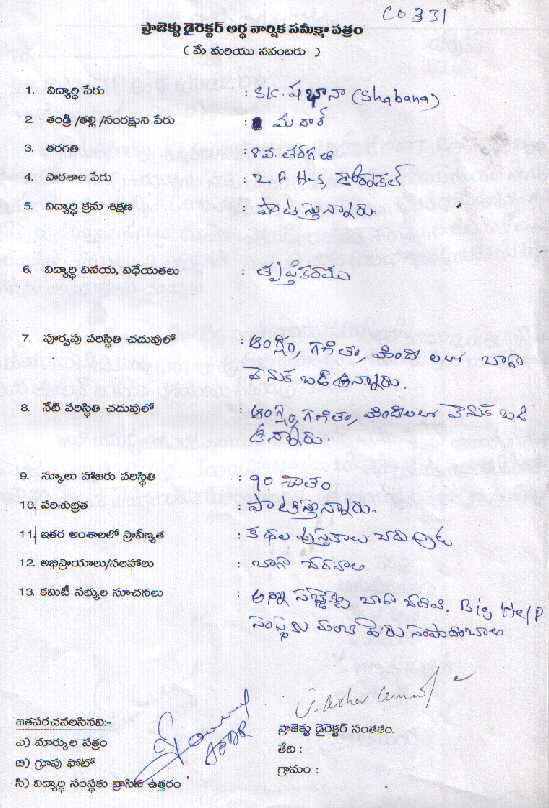 CO 331
ప్రాజెక్టు డైరెక్టర్ అర్ధ వార్షిక సమీక్షా పత్రం
( మే మరియు నవంబరు )
1. విద్యార్థి పేరు : SK. షభానా (Shabana)
2. తండ్రి /తల్లి /సంరక్షకుని పేరు : మదార్
3. తరగతి : 8వ. తరగతి
4. పాఠశాల పేరు : Z. P H.S,
5. విద్యార్థి క్రమ శిక్షణ : పాటిస్తున్నారు.
6. విద్యార్థి వినయ, విధేయతలు : తృప్తికరము
7. పూర్వపు పరిస్థితి చదువులో : ఆంగ్లం, గణితం, హిందీ లలో బాగా
వెనుక బడి ఉన్నారు.
8. నేటి పరిస్థితి చదువులో : ఆంగ్లం, గణితం, హిందీలలో వెనుక బడి
ఉన్నారు.
9. స్కూలు హాజరు పరిస్థితి : 90 శాతం
10. పరిశుభ్రత : పాటిస్తున్నారు.
11. ఇతర అంశాలలో ప్రావీణ్యత : కథల పుస్తకాలు చదువుట
12. అభిప్రాయాలు/సలహాలు : బాగా చదవాలి
13. కమిటీ సభ్యుల సూచనలు : అన్ని సబ్జెక్ట్స్ బాగా చదివి. Big Help
సంస్థకు మంచి పేరు సంపాదించాలి
జతపరచవలసినవి:-
ఎ) మార్కుల పత్రం
బి) గ్రూపు ఫోటో
సి) విద్యార్థి సంస్థకు వ్రాసిన ఉత్తరం
ప్రాజెక్టు డైరెక్టర్ సంతకం.
తేది :
గ్రామం :